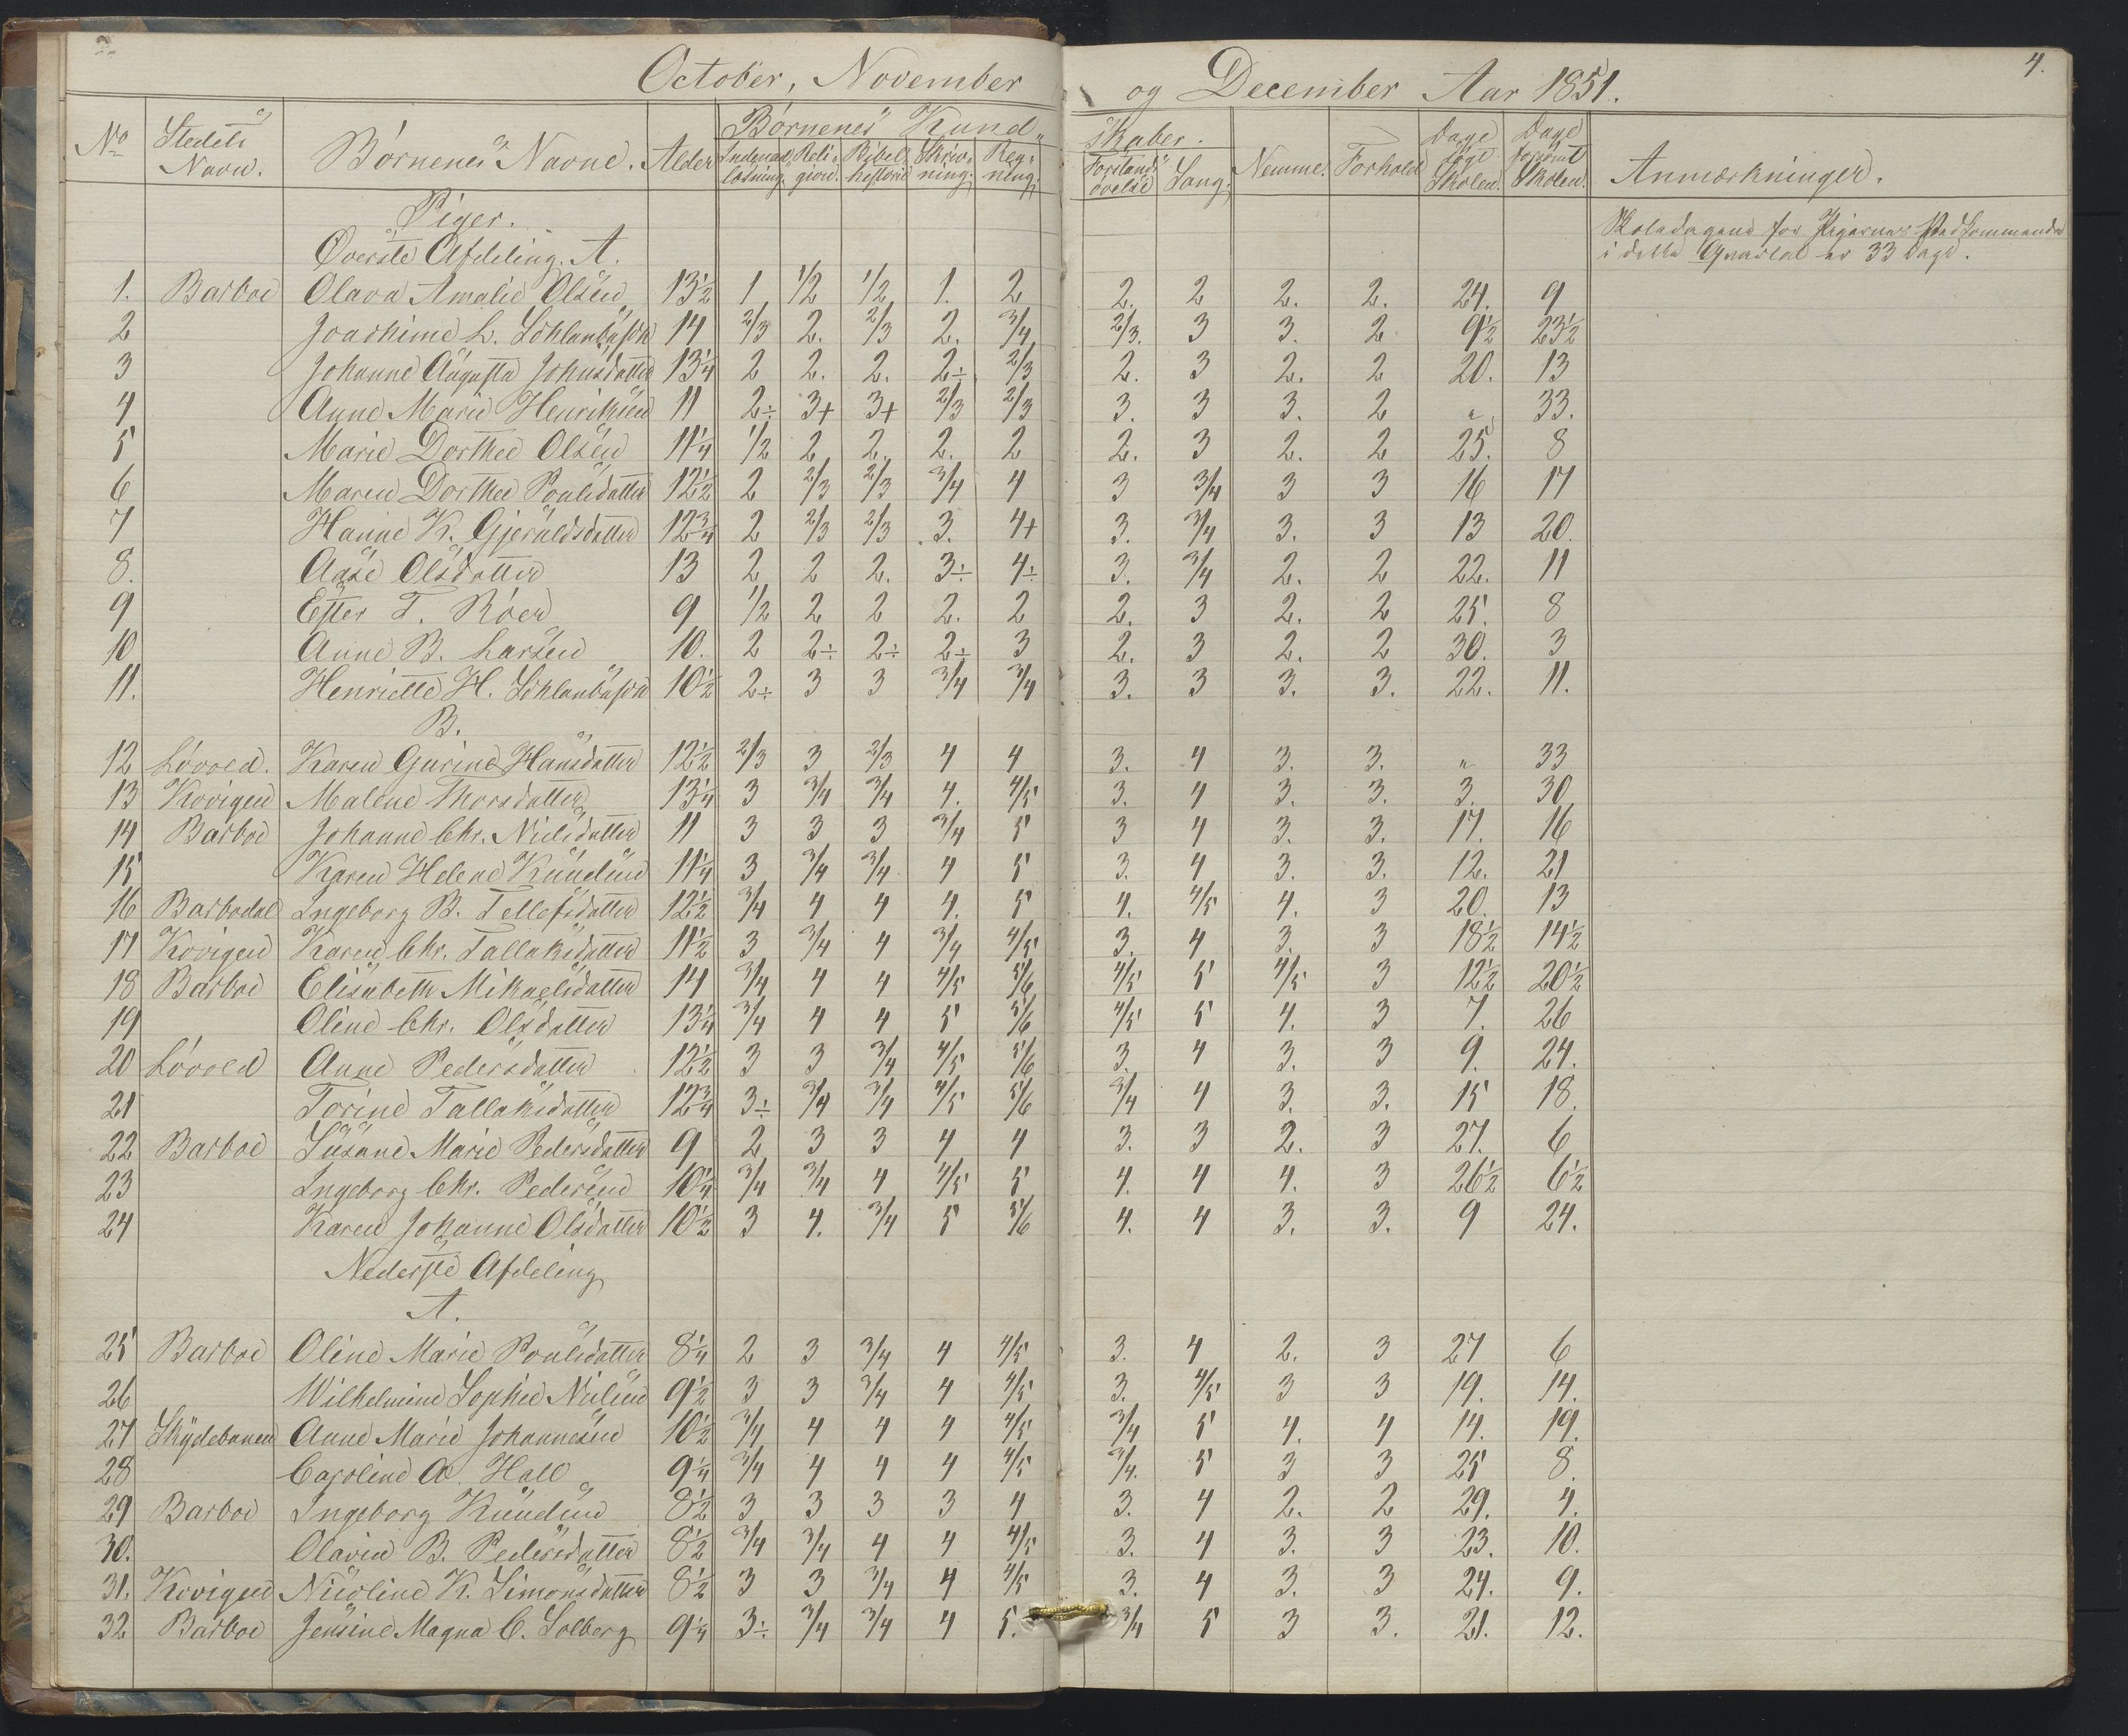 October, November og December Aar 1851. 4.
No Stedets Navn. Børnenes Navne. Alder Børnenes Kundskaber. Nemme. Forhold Dage søgt Skolen. Dage forsømt Skolen. Anmærkninger.
Indenadlæsning. Religion. Bibelhistorie Skrivning. Regning. Forstandsøvelse Sang.
Piger. Skoledagene for Pigernes Vedkommende
Øverste Afdeling. A. i dette Qvartal er 33 Dage.
1. Barboe Olava Amalie Olsen 13½ 1 1/2 1/2 1. 2 2. 2 2. 2. 24. 9
2 Joachime L. 14 2/3 2. 2/3 2. 3/4 2/3. 3 3. 2 9½ 23½
3 Johanne Augusta Johnsdatter 13¼ 2 2. 2. 2÷ 2/3 2. 3 2. 2 20. 13
4 Anne Marie Henriksen 11 2÷ 3+ 3+ 2/3 2/3 3. 3 3. 2 " 33.
5 Marie Dorthee Olsen 11¼ 1/2 2 2. 2. 2 2. 3 2. 2 25. 8
6 Maren Dorthee Poulsdatter 12½ 2 2/3 2/3 3/4 4 3 3/4 3 3 16 17
7 Hanne K. Gjeruldsdatter 12¾ 2 2/3 2/3 3. 4+ 3. 3/4 3. 3 13 20.
8. Aase Olsdatter 13 2 2 2. 3÷ 4÷ 3. 3/4 2. 2 22. 11
9 Ester T. Röer 9 1/2 2 2 2. 2 2. 3 2. 2 25. 8
10 Anne B. Larsen 10. 2 2÷ 2÷ 2÷ 3 2. 3 2. 2 30. 3
11. Henriette H. 10½ 2÷ 3 3 3/4 3/4 3. 3 3. 3. 22. 11.
B.
12 Lövold. Karen Gurine Hansdatter 12½ 2/3 3 2/3 4 4 3. 4 3. 3. " 33
13 Kovigen Malene Thorsdatter 13¼ 3 3/4 3/4 4. 4/5 3. 4 3. 3. 3. 30
14 Barboe Johanne Chr. Nielsdatter 11 3 3 3 3/4 5 3 4 3. 3. 17. 16
15 Karen Helene Knudsen 11¼ 3 3/4 3/4 4 5 3. 4 3. 3. 12. 21
16 Barbodal Ingeborg B. Tellefsdatter 12½ 3/4 4 4 4. 5 4. 4/5 4. 3 20. 13
17 Kovigen Karen Chr. Tallaksdatter 11½ 3 3/4 4 3/4 4/5 3. 4 3. 3 18½ 14½
18 Barboe Elisabeth Mikaelsdatter 14 3/4 4 4 4/5 5/6 4/5 5 4/5 3 12½ 20½
19 Oline Chr. Olsdatter 13¼ 3/4 4 4 5 5/6 4/5 5 4. 3 7. 26
20 Lövold Anne Pedersdatter 12½ 3 3 3/4 4/5 5/6 3. 4 3. 3 9. 24.
21 Torine Tallaksdatter 12¾ 3÷ 3/4 3/4 4/5 5/6 3/4 4 3. 3. 15 18.
22 Barboe Susane Marie Pedersdatter 9 2 3 3 4 4 3. 3 2. 3 27. 6
23 Ingeborg Chr. Pedersen 10¼ 3/4 3/4 4 4/5 5 4. 4 4. 3 26½ 6½
24 Karen Johanne Olsdatter 10½ 3 4. 3/4 5 5/6 4. 4 3. 3. 9 24.
Nederste Afdeling
A.
25 Barboe Oline Marie Poulsdatter 8¼ 2 3 3/4 4 4/5 3. 4 2. 3 27 6
26 Wilhelmine Sophie Nielsen 9½ 3 3 3/4 4 4/5 3. 4/5 3 3 19. 14.
27 Skydebanen Anne Marie Johannesen 10½ 3/4 4 4 4 4/5 3/4 5 4. 4 14. 19.
28 Caroline A. Hall 9¼ 3/4 4 4 4 4/5 3/4. 5 3 3 25 8.
29 Barboe Ingeborg Knudsen 8½ 3 3 3 3 4 3. 4 2. 2 29. 4.
30. Olavia B. Pedersdatter 8½ 3/4 3/4 4 4 4/5 3. 4 3. 3 23. 10.
31. Kovigen Nicoline K. Simonsdatter 8½ 3 3 3/4 4 4/5 3. 4 3. 3 24. 9.
32 Barboe Jensine Magna C. Solberg 9¼ 3÷ 3/4 3/4 4 5. 3/4 5 3 3. 21. 12.